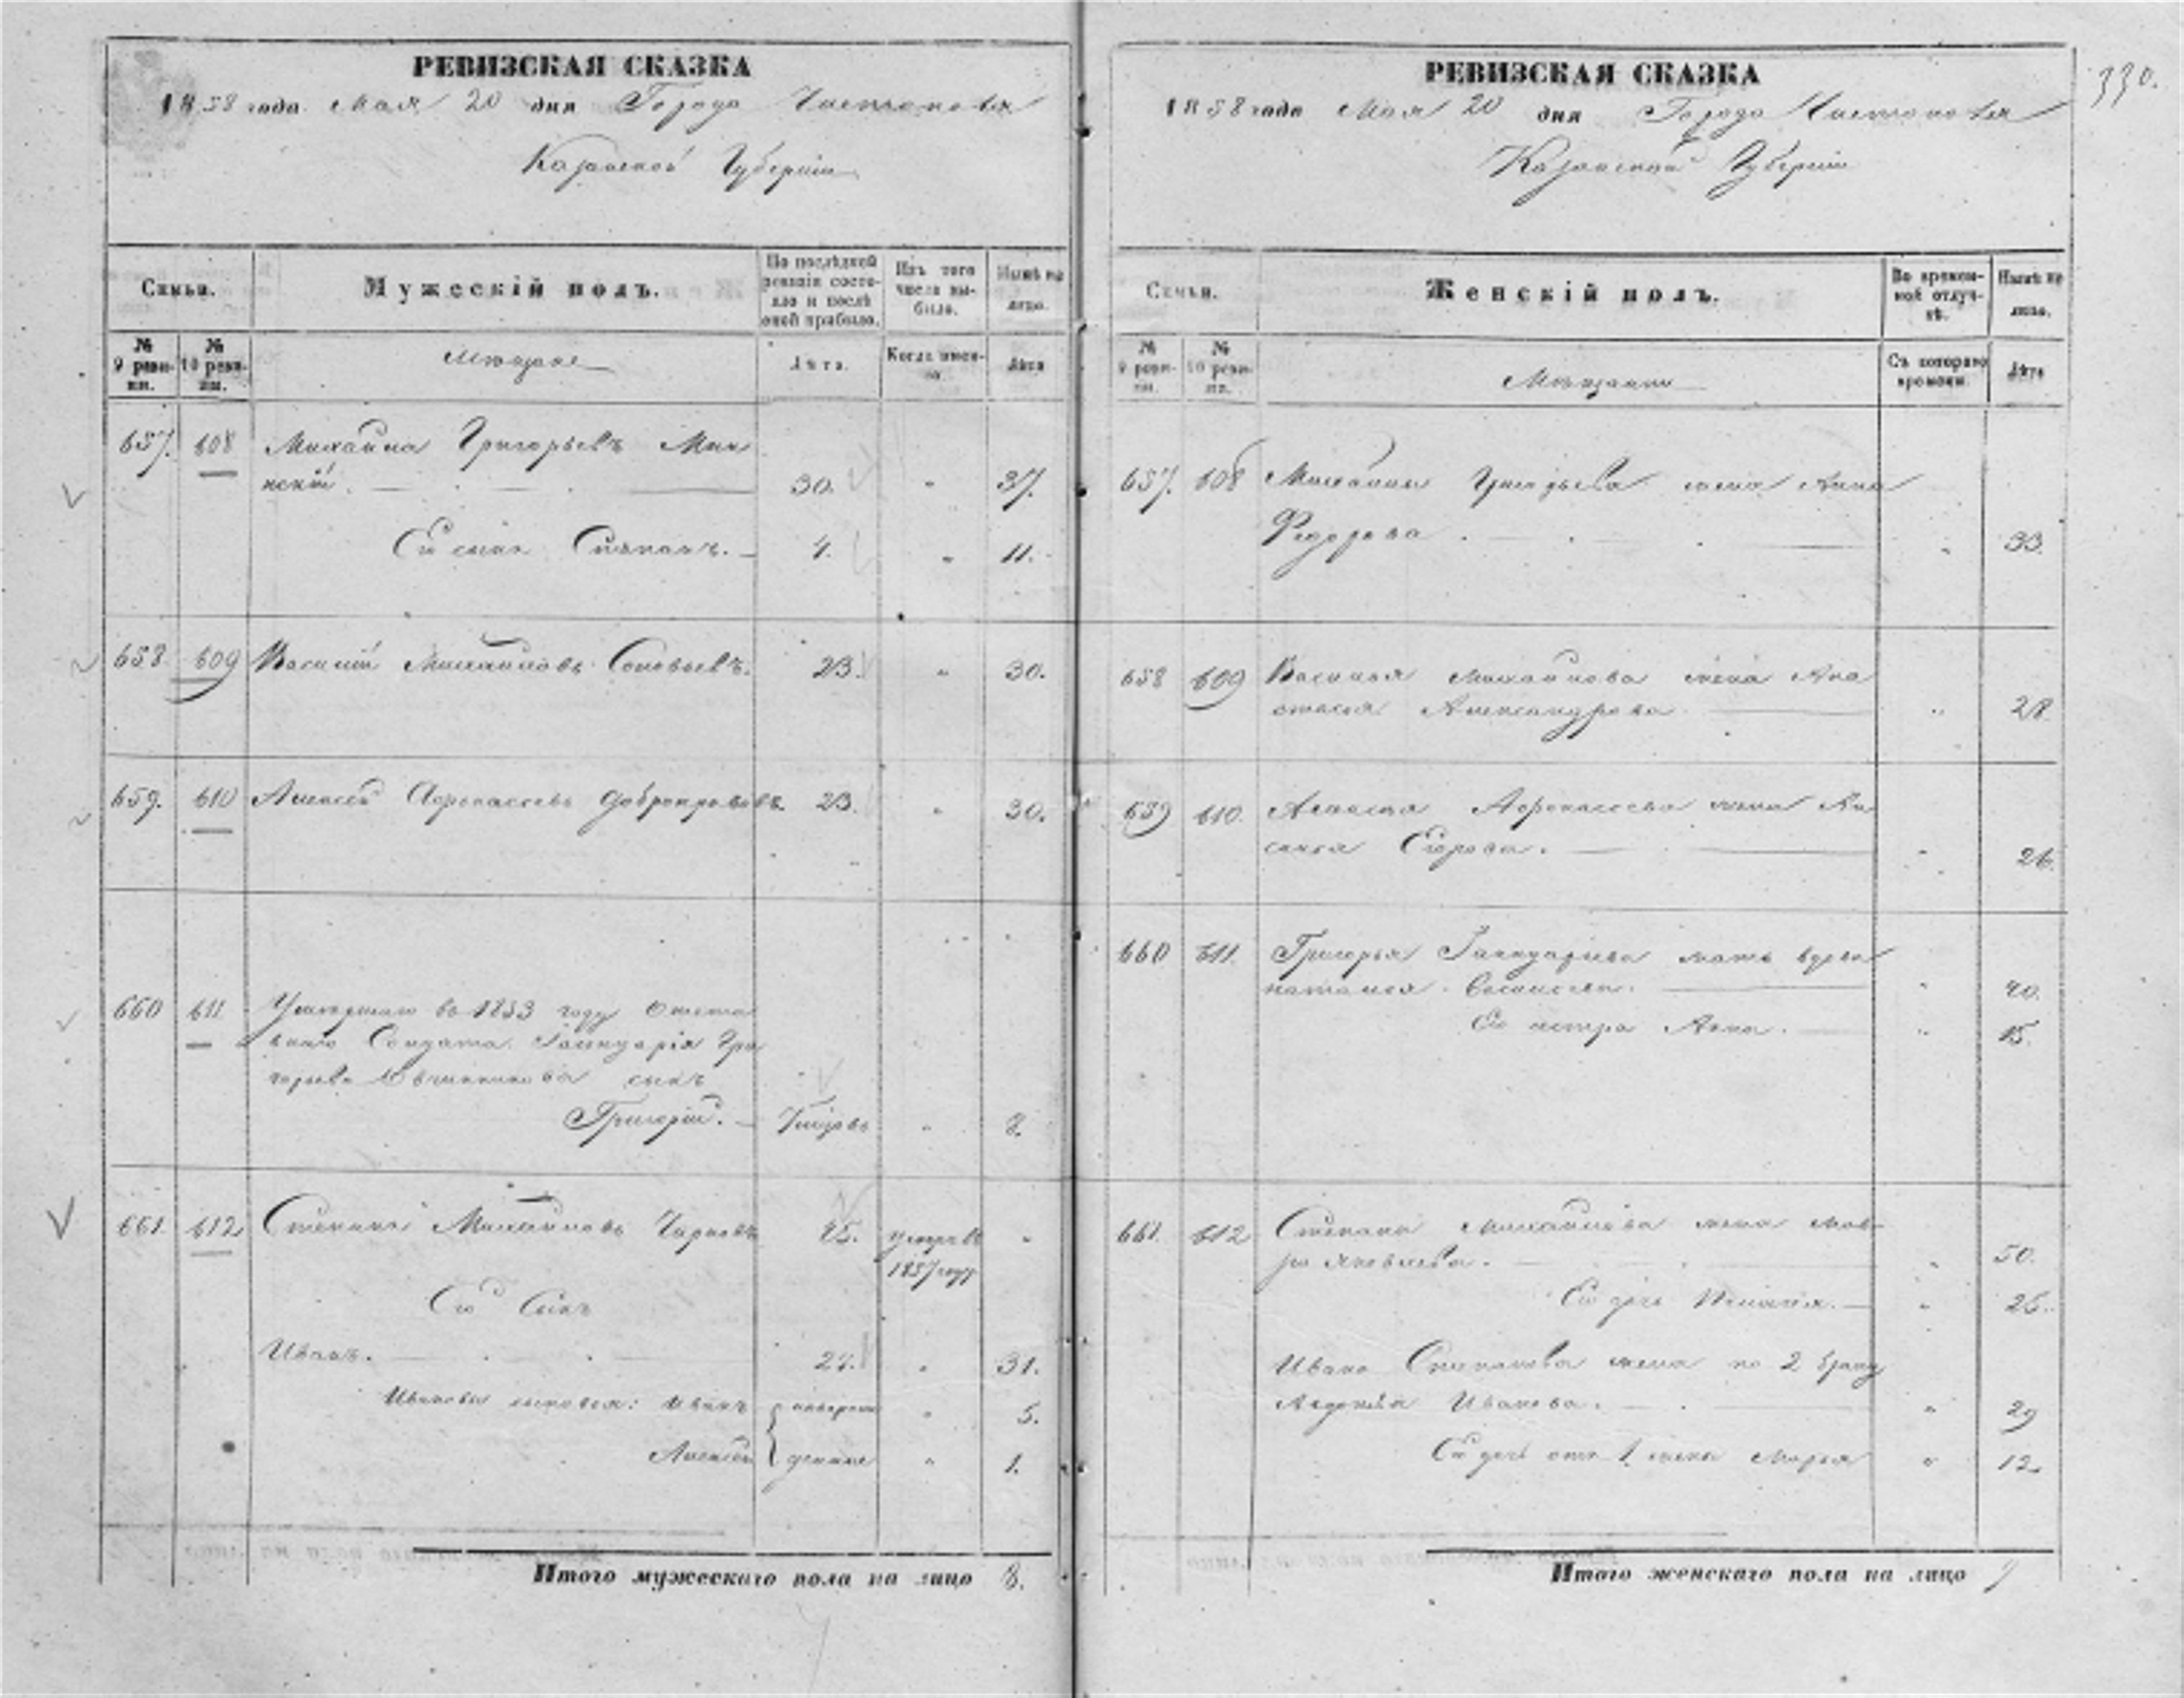 330.
РЕВИЗСКАЯ СКАЗКА
1858 года Мая 20 дня Города Чистополя
Казанской Губерніи
Семьи.
Мужескій полъ.
По послѣдней ревизіи состояло и послѣ оной прибыло.
Изъ того числа выбыло.
Нынѣ на лицо.
№ 9 ревизіи.
№ 10 ревизіи.
Мѣщане
Лѣта.
Когда именно.
Лѣта
657. 608 Михаила Григорьевъ
нскій. 30. " 37.
Его сынъ Степанъ. 4. " 11.
658. 609 Василій Михайловъ Соловьевъ. 23. " 30.
659. 610 Алексей Афонасьевъ Добронравовъ. 23. " 30.
660 611 Умершаго въ 1853 году отста
внаго Солдата Іаннуарія Гри
горьева Овчинникова сынъ
Григорій. " 8.
661. 612 Степанъ Михайловъ 45. умеръ въ "
1857 году
Его Сынъ
Иванъ. 24. " 31.
Ивановы сыновья: Иванъ новорож " 5.
Алексей денные " 1.
Итого мужескаго пола на лицо 8.
РЕВИЗСКАЯ СКАЗКА
1858 года Мая 20 дня Города Чистополя
Казанской Губерніи
Семьи.
Женскій полъ.
Во временной отлучкѣ.
Нынѣ на лицо.
№ 9 ревизіи.
№ 10 ревизіи.
Мѣщане
Съ котораго времени.
Лѣта
657. 608 Михайлы Григорьева жена Анна
Федорова. " 33.
658 609 Василья Михайлова жена Ана
стасья Александрова " 28.
659 610. Алексея Афонасьева жена
Егорова. " 26.
660 611. Григорья Іаннуарьева мать вдова
Наталья Васильева. " 40.
Его сестра Анна. " 15.
661. 612 Степана Михайлова жена Мав
ра Яковлева. " 50.
Его дочь " 26.
Ивана Степанова жена по 2 браку
Авдотья Иванова. " 29
Его дочь отъ 1 жены Марья " 12
Итого женскаго пола на лицо 9